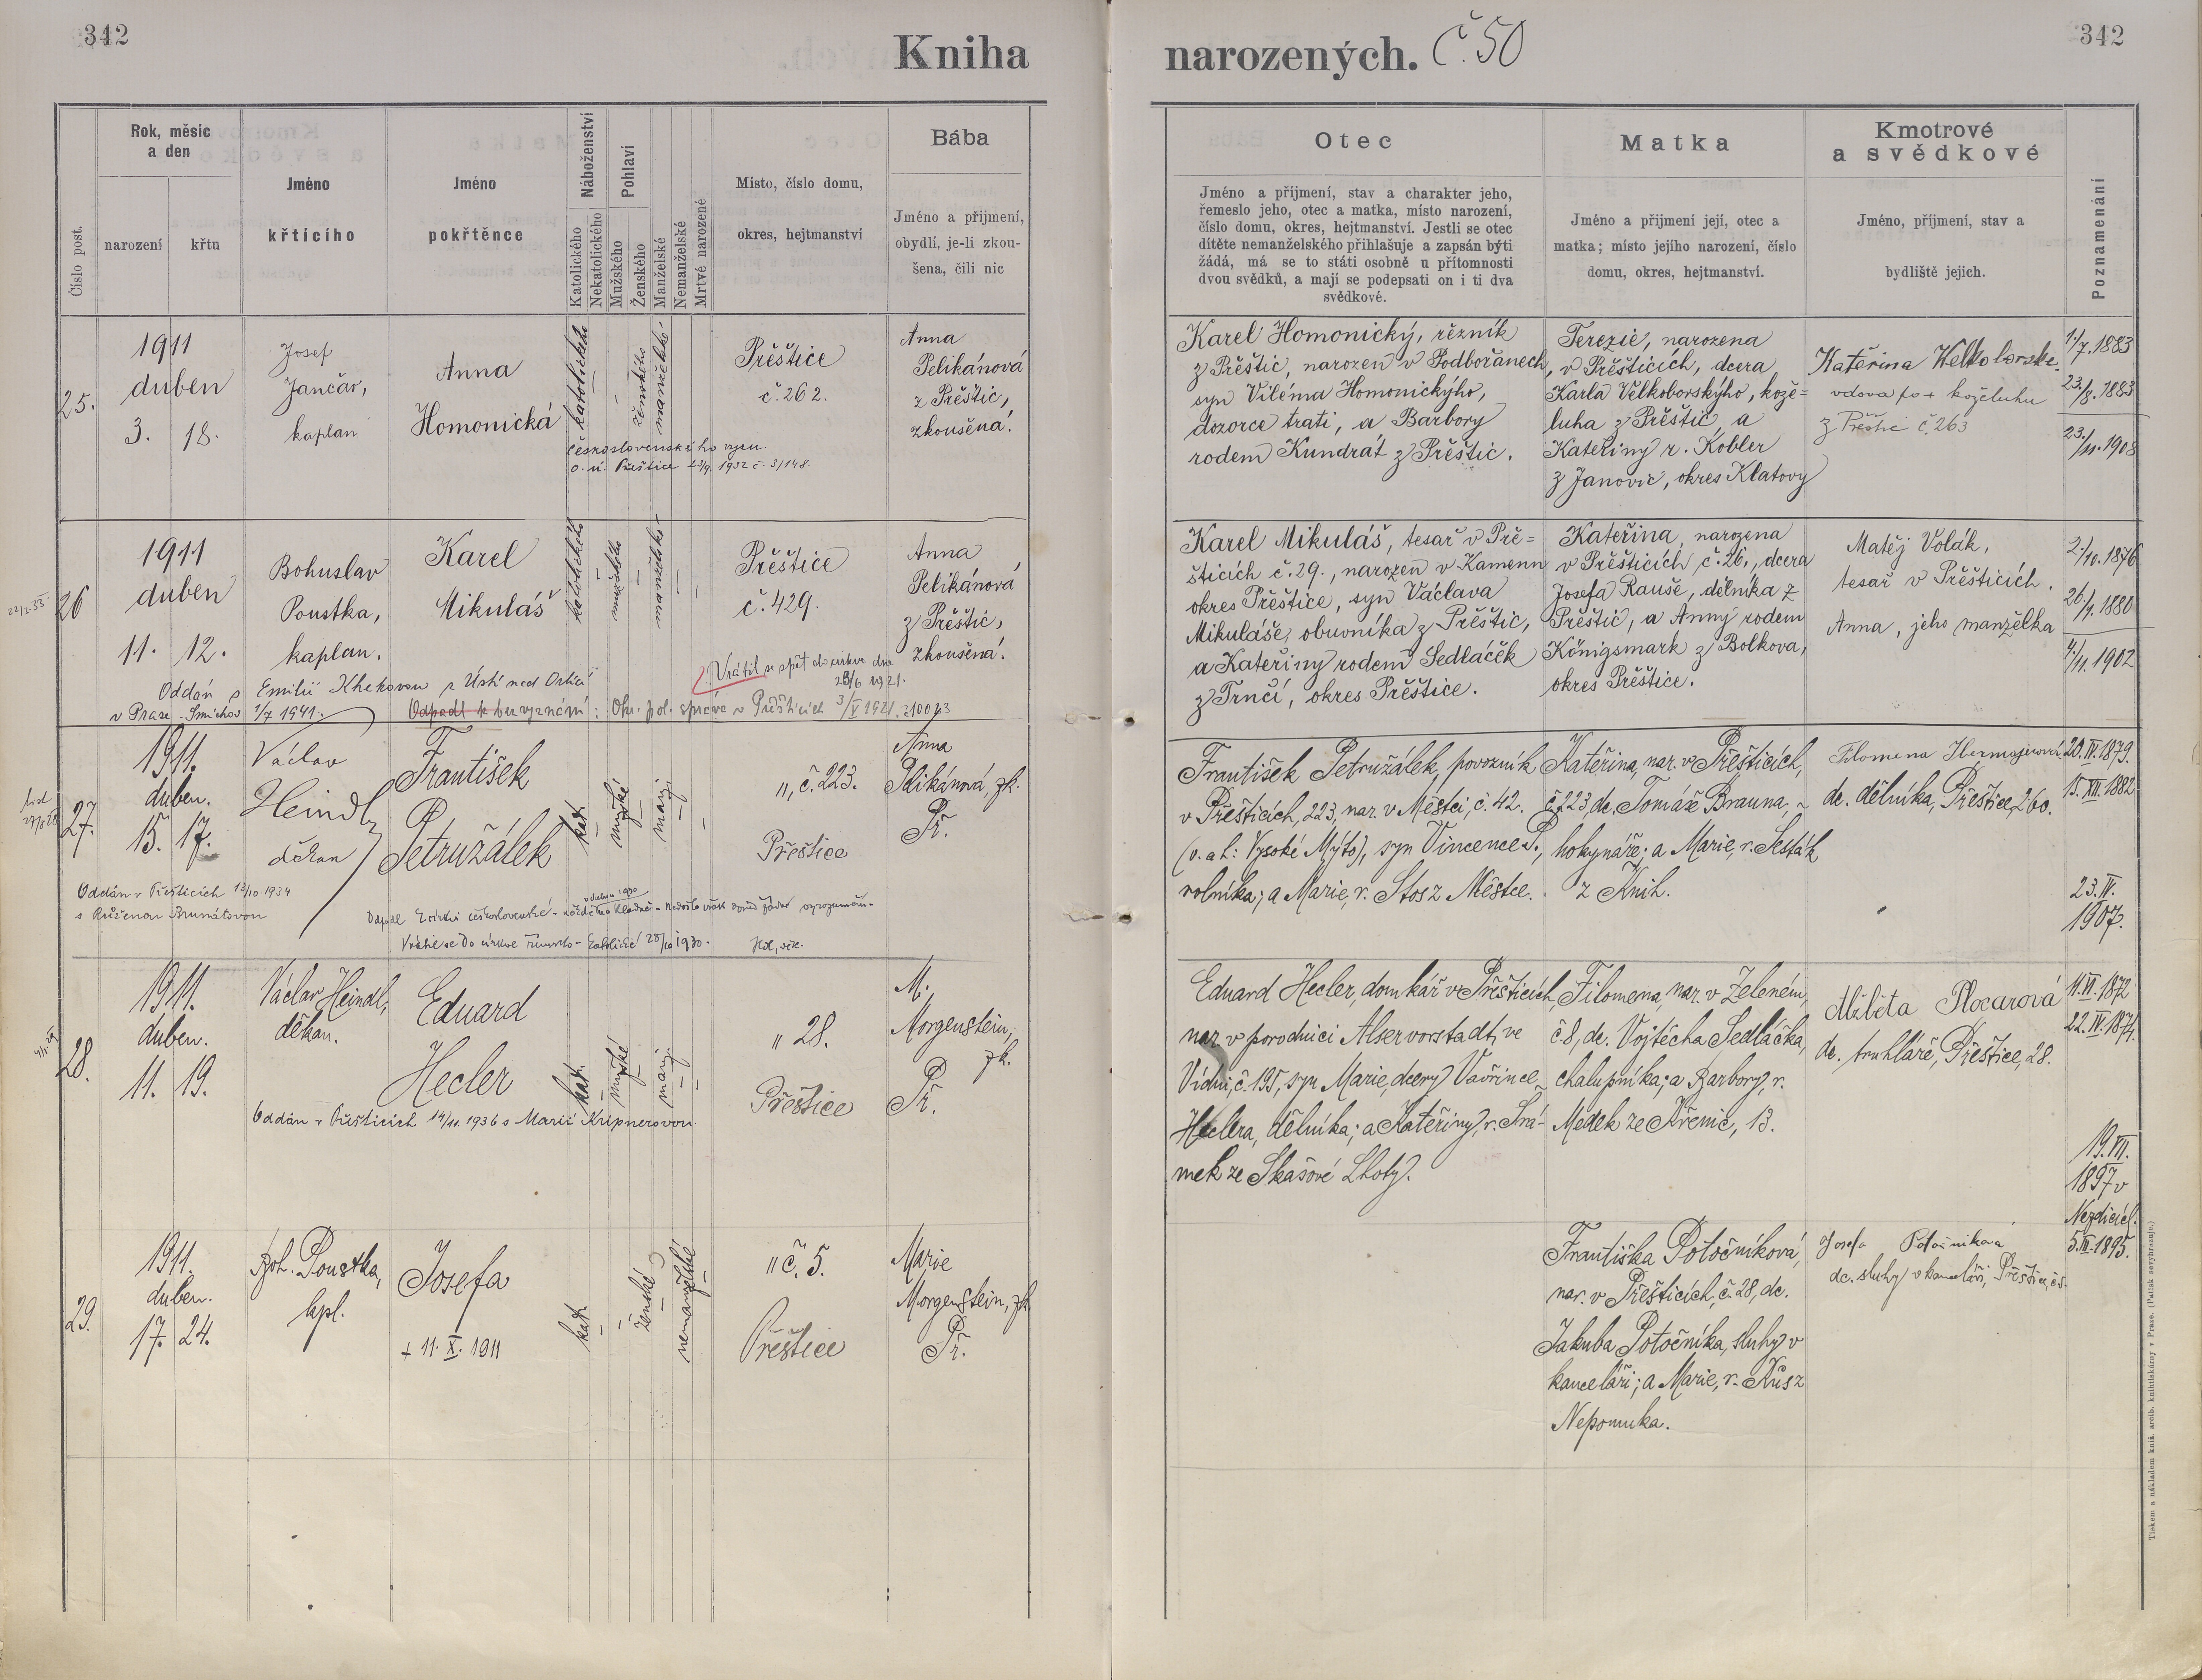 342
Kniha
narozených. Č. 50
342
Číslo post.
Rok, měsíc
a den
narození
křtu
Jméno
křtícího
Jméno
pokřtěnce
Náboženství
Katolického
Nekatolického
Pohlaví
Mužského
Ženského
Manželské
Nemanželské
Mrtvé narozené
Místo, číslo domu,
okres, hejtmanství
Bába
Jméno a přijmení,
obydlí, je-li zkou-
šena, čili nic
Otec
Jméno a příjmení, stav a charakter jeho,
řemeslo jeho, otec a matka, místo narození,
číslo domu, okres, hejtmanství. Jestli se otec
dítěte nemanželského přihlašuje a zapsán býti
žádá, má se to státi osobně u přítomnosti
dvou svědků, a mají se podepsati on i ti dva
svědkové.
Matka
Jméno a přijmení její, otec a
matka; místo jejího narození, číslo
domu, okres, hejtmanství.
Kmotrové
a svědkové
Jméno, příjmení, stav a
bydliště jejich.
Poznamenání
25.
1911
duben
3. 18.
Josef
Jančar,
kaplan
Anna
Homonická
katolického
ženského
manželské
Přeštice
č. 262.
Anna
Pelikánová
z Přeštic,
zkoušená.
československého vyzn.
o. ú. Přeštice 23/9. 1932 č. 3/148.
Karel Homonický, řezník
z Přeštic, narozen v Podbořanech,
syn Viléma Homonickýho,
dozorce trati, a Barbory
rodem Kundrát z Přeštic.
Terezie, narozena
v Přešticích, dcera
Karla Velkoborskýho, kože=
luha z Přeštic, a
Kateřiny r. Kobler
z Janovic, okres Klatovy
Kateřina Welkoborská
vdova po + koželuhu
z Přeštic č. 263
11/7. 1883
23./8. 1883
23./11. 1908
26
1911
duben
11. 12.
Bohuslav
Poustka,
kaplan.
Karel
Mikuláš
katolického
mužského
manželské
Přeštice
č. 429.
Anna
Pelikánová
z Přeštic,
zkoušená.
Vrátil se zpět do církve dne
Oddán s Emilií Khekovou z Ústí nad Orlicí
v Praze - Smíchov 1/7 1941.
Odpadl k bezvyznání: Okr. pol. správa v Přešticích 3/V 1921. 21003
Karel Mikuláš, tesař v Pře=
šticích č. 29., narozen v Kamenn
okres Přeštice, syn Václava
Mikuláše, obuvníka z Přeštic,
a Kateřiny rodem Sedláček
z Trnčí, okres Přeštice.
Kateřina, narozena
v Přešticích, č. 26., dcera
Josefa Rauše, dělníka z
Přeštic, a Anny rodem
Königsmark z Bolkova,
okres Přeštice.
Matěj Volák,
tesař v Přešticích.
Anna, jeho manželka
2./10. 1876
26./7. 1880
4./11. 1902
27.
1911.
duben.
15. 17.
Václav
Heindl,
děkan
František
Petružálek
kat.
mužské
manž.
„, č. 223.
Přeštice
Anna
Pelikánová, zk.
Př.
Oddán v Přešticích 13/10 1934
s Růženou Brunátovou
Vrátil se do církve římsko-katolické 28/10 1930.
František Petružálek, povozník
v Přešticích, 223, nar. v Městci, č. 42.
(o. a h: Vysoké Mýto), syn Vincence P.,
rolníka; a Marie, r. Stosz Městce.
Kateřina, nar. v Přešticích,
č. 223, dc. Tomáše Brauna,
hokynáře; a Marie, r. Šesták
z Knih.
Filomena
dc. dělníka, Přeštice, 260.
20. IV. 1879.
15. XII. 1882
23. IV.
1907.
28.
1911.
duben.
11. 19.
Václav Heindl,
děkan.
Eduard
Hecler
kat.
mužské
manž.
„ 28.
Přeštice
M.
Morgenstein,
zk.
Př.
Oddán v Přešticích 14/11. 1936 s Marií Kripnerovou
Eduard Hecler, domkář v Přešticích,
nar. v porodnici Alservorstadt, ve
Vídni, č. 195, syn Marie, dcery Vavřince
Heclera, dělníka; a Kateřiny, r. Srá-
mek ze Skašové Lhoty.
Filomena, nar. v Zeleném,
č. 8, dc. Vojtěcha Sedláčka,
chalupníka; a Barbory, r.
Medek ze Křenic, 13.
Alžběta Plocarová
dc. truhláře, Přeštice, 28.
11. VI. 1872
22. IV. 1874.
19. VII.
1897 v
Nezdicích.
29.
1911.
duben.
17. 24.
Boh. Poustka,
kpl.
Josefa
+ 11. X. 1911
kat.
ženské
nemanželské
„ č. 5.
Přeštice
Marie
Morgenstein, zk.
Př.
Františka Potočníková,
nar. v Přešticích, č. 28, dc.
Jakuba Potočníka, sluhy v
kanceláři; a Marie, r. Kůsz
Nepomuka.
Josefa Potočníková
dc. sluhy v kanceláři, Přeštice, č. 5.
5. III. 1895.
Tiskem a nákladem kníž. arcib. knihtiskárny v Praze. (Patisk nevyhrazuje.)